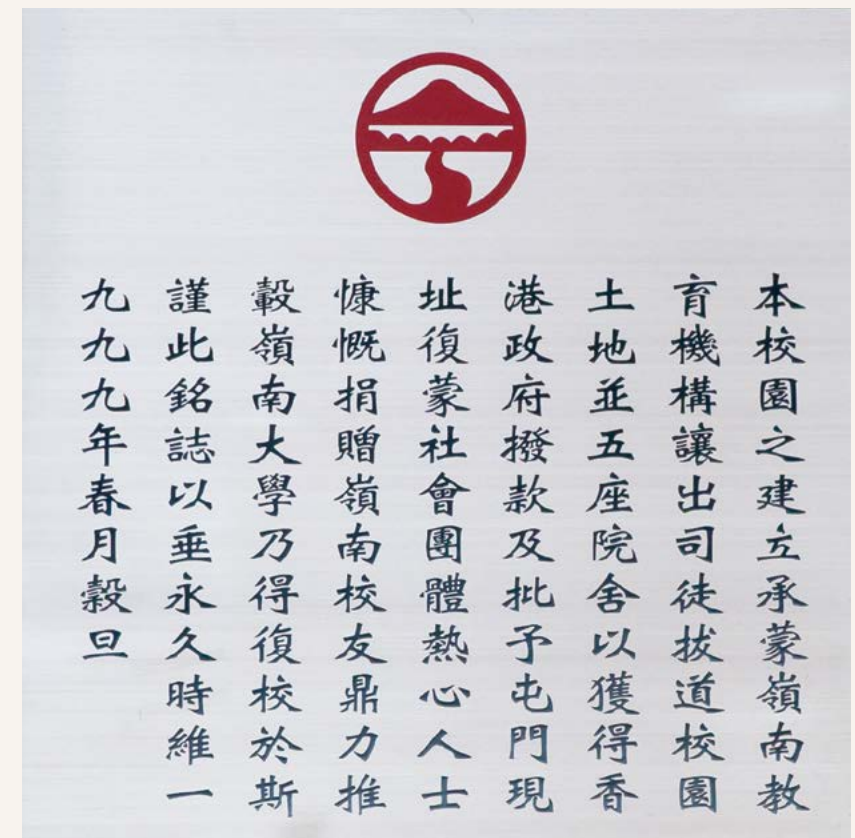 本校園之建立承蒙嶺南教
育機構讓出司徒拔道校園
土地並五座院舍以獲得香
港政府撥款及批予屯門現
址復蒙社會團體熱心人士
慷慨捐贈嶺南校友鼎力推
轂嶺南大學乃得復校於斯
謹此銘誌以垂永久時維一
九九九年春月穀旦